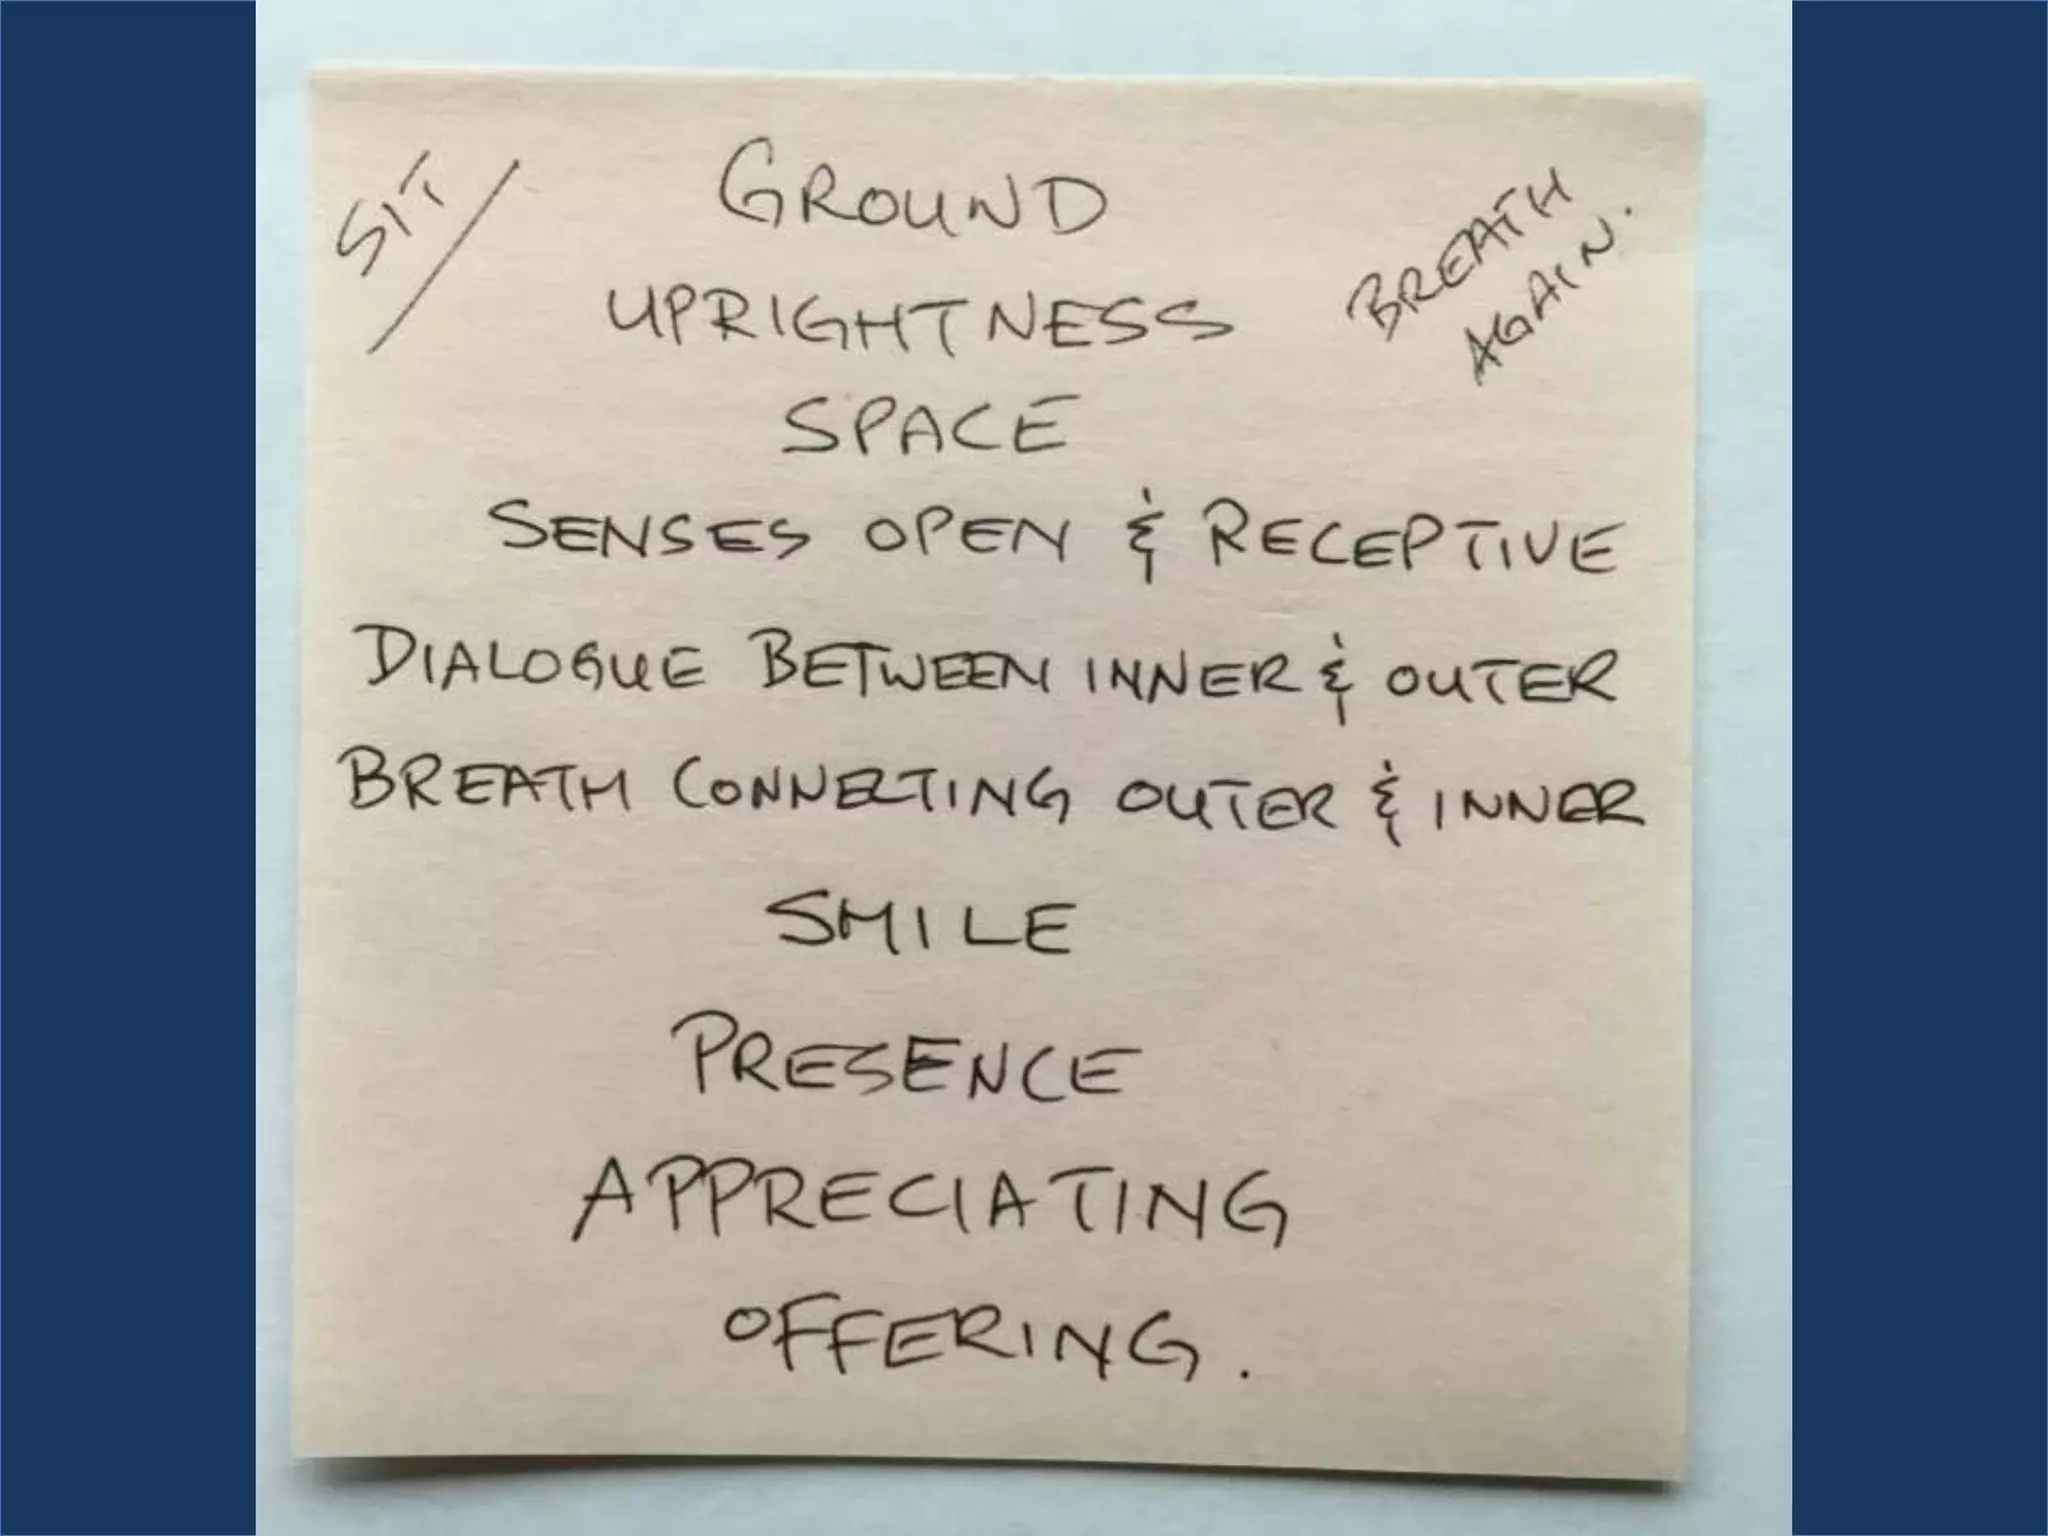 SIT
GROUND
BREATH
AGAIN.
UPRIGHTNESS
SPACE
SENSES OPEN & RECEPTIVE
DIALOGUE BETWEEN INNER & OUTER
BREATH CONNECTING OUTER & INNER
SMILE
PRESENCE
APPRECIATING
OFFERING.